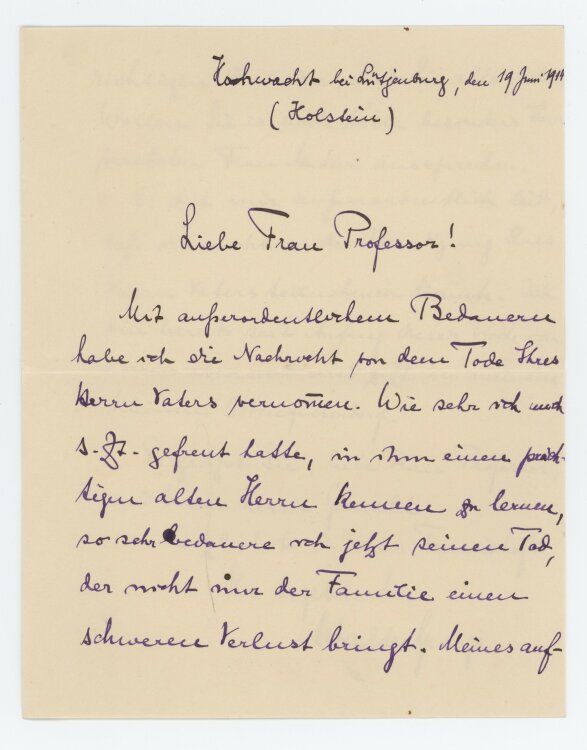 Hochwacht bei Lütjenburg, den 19 Juni 1914
(Holstein)
Liebe Frau Professor!
Mit außerordentlichem Bedauern
habe ich die Nachricht von dem Tode Ihres
Herrn Vaters vernom̅en. Wie sehr ich mich
s. Zt. gefreut hatte, in ihm einen präch-
tigen alten Herrn kennen zu lernen,
so sehr bedauere ich jetzt seinen Tod,
der nicht nur der Familie einen
schweren Verlust bringt. Meines auf-